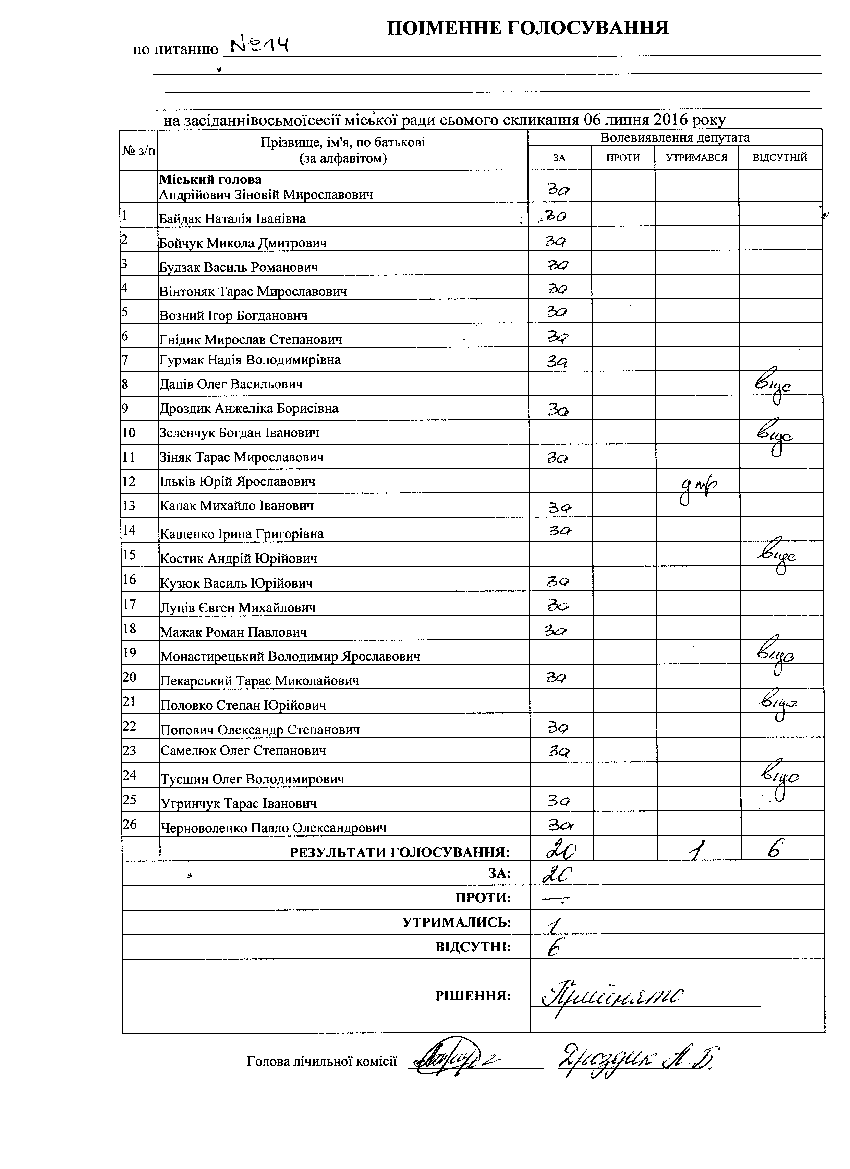 ПОІМЕННЕ ГОЛОСУВАННЯ
по питанню №14
на засіданнівосьмоїсесії міської ради сьомого скликання 06 липня 2016 року
№ з/п Прізвище, ім'я, по батькові (за алфавітом) Волевиявлення депутата
ЗА ПРОТИ УТРИМАВСЯ ВІДСУТНІЙ
Міський голова
Андрійович Зіновій Мирославович За
1 Байдак Наталія Іванівна За
2 Бойчук Микола Дмитрович За
3 Будзак Василь Романович За
4 Вінтоняк Тарас Мирославович За
5 Возний Ігор Богданович За
6 Гнідик Мирослав Степанович За
7 Гурмак Надія Володимирівна За
8 Даців Олег Васильович відс
9 Дроздик Анжеліка Борисівна За
10 Зеленчук Богдан Іванович відс
11 Зіняк Тарас Мирославович За
12 Ільків Юрій Ярославович утр
13 Капак Михайло Іванович За
14 Кащенко Ірина Григорівна За
15 Костик Андрій Юрійович відс
16 Кузюк Василь Юрійович За
17 Луців Євген Михайлович За
18 Мажак Роман Павлович За
19 Монастирецький Володимир Ярославович відс
20 Пекарський Тарас Миколайович За
21 Половко Степан Юрійович відс
22 Попович Олександр Степанович За
23 Самелюк Олег Степанович За
24 Тусшин Олег Володимирович відс
25 Угринчук Тарас Іванович За
26 Черноволенко Павло Олександрович За
РЕЗУЛЬТАТИ ГОЛОСУВАННЯ: 20 1 6
ЗА: 20
ПРОТИ: —
УТРИМАЛИСЬ: 1
ВІДСУТНІ: 6
РІШЕННЯ: Прийнято
Голова лічильної комісії Дроздик А.Б.